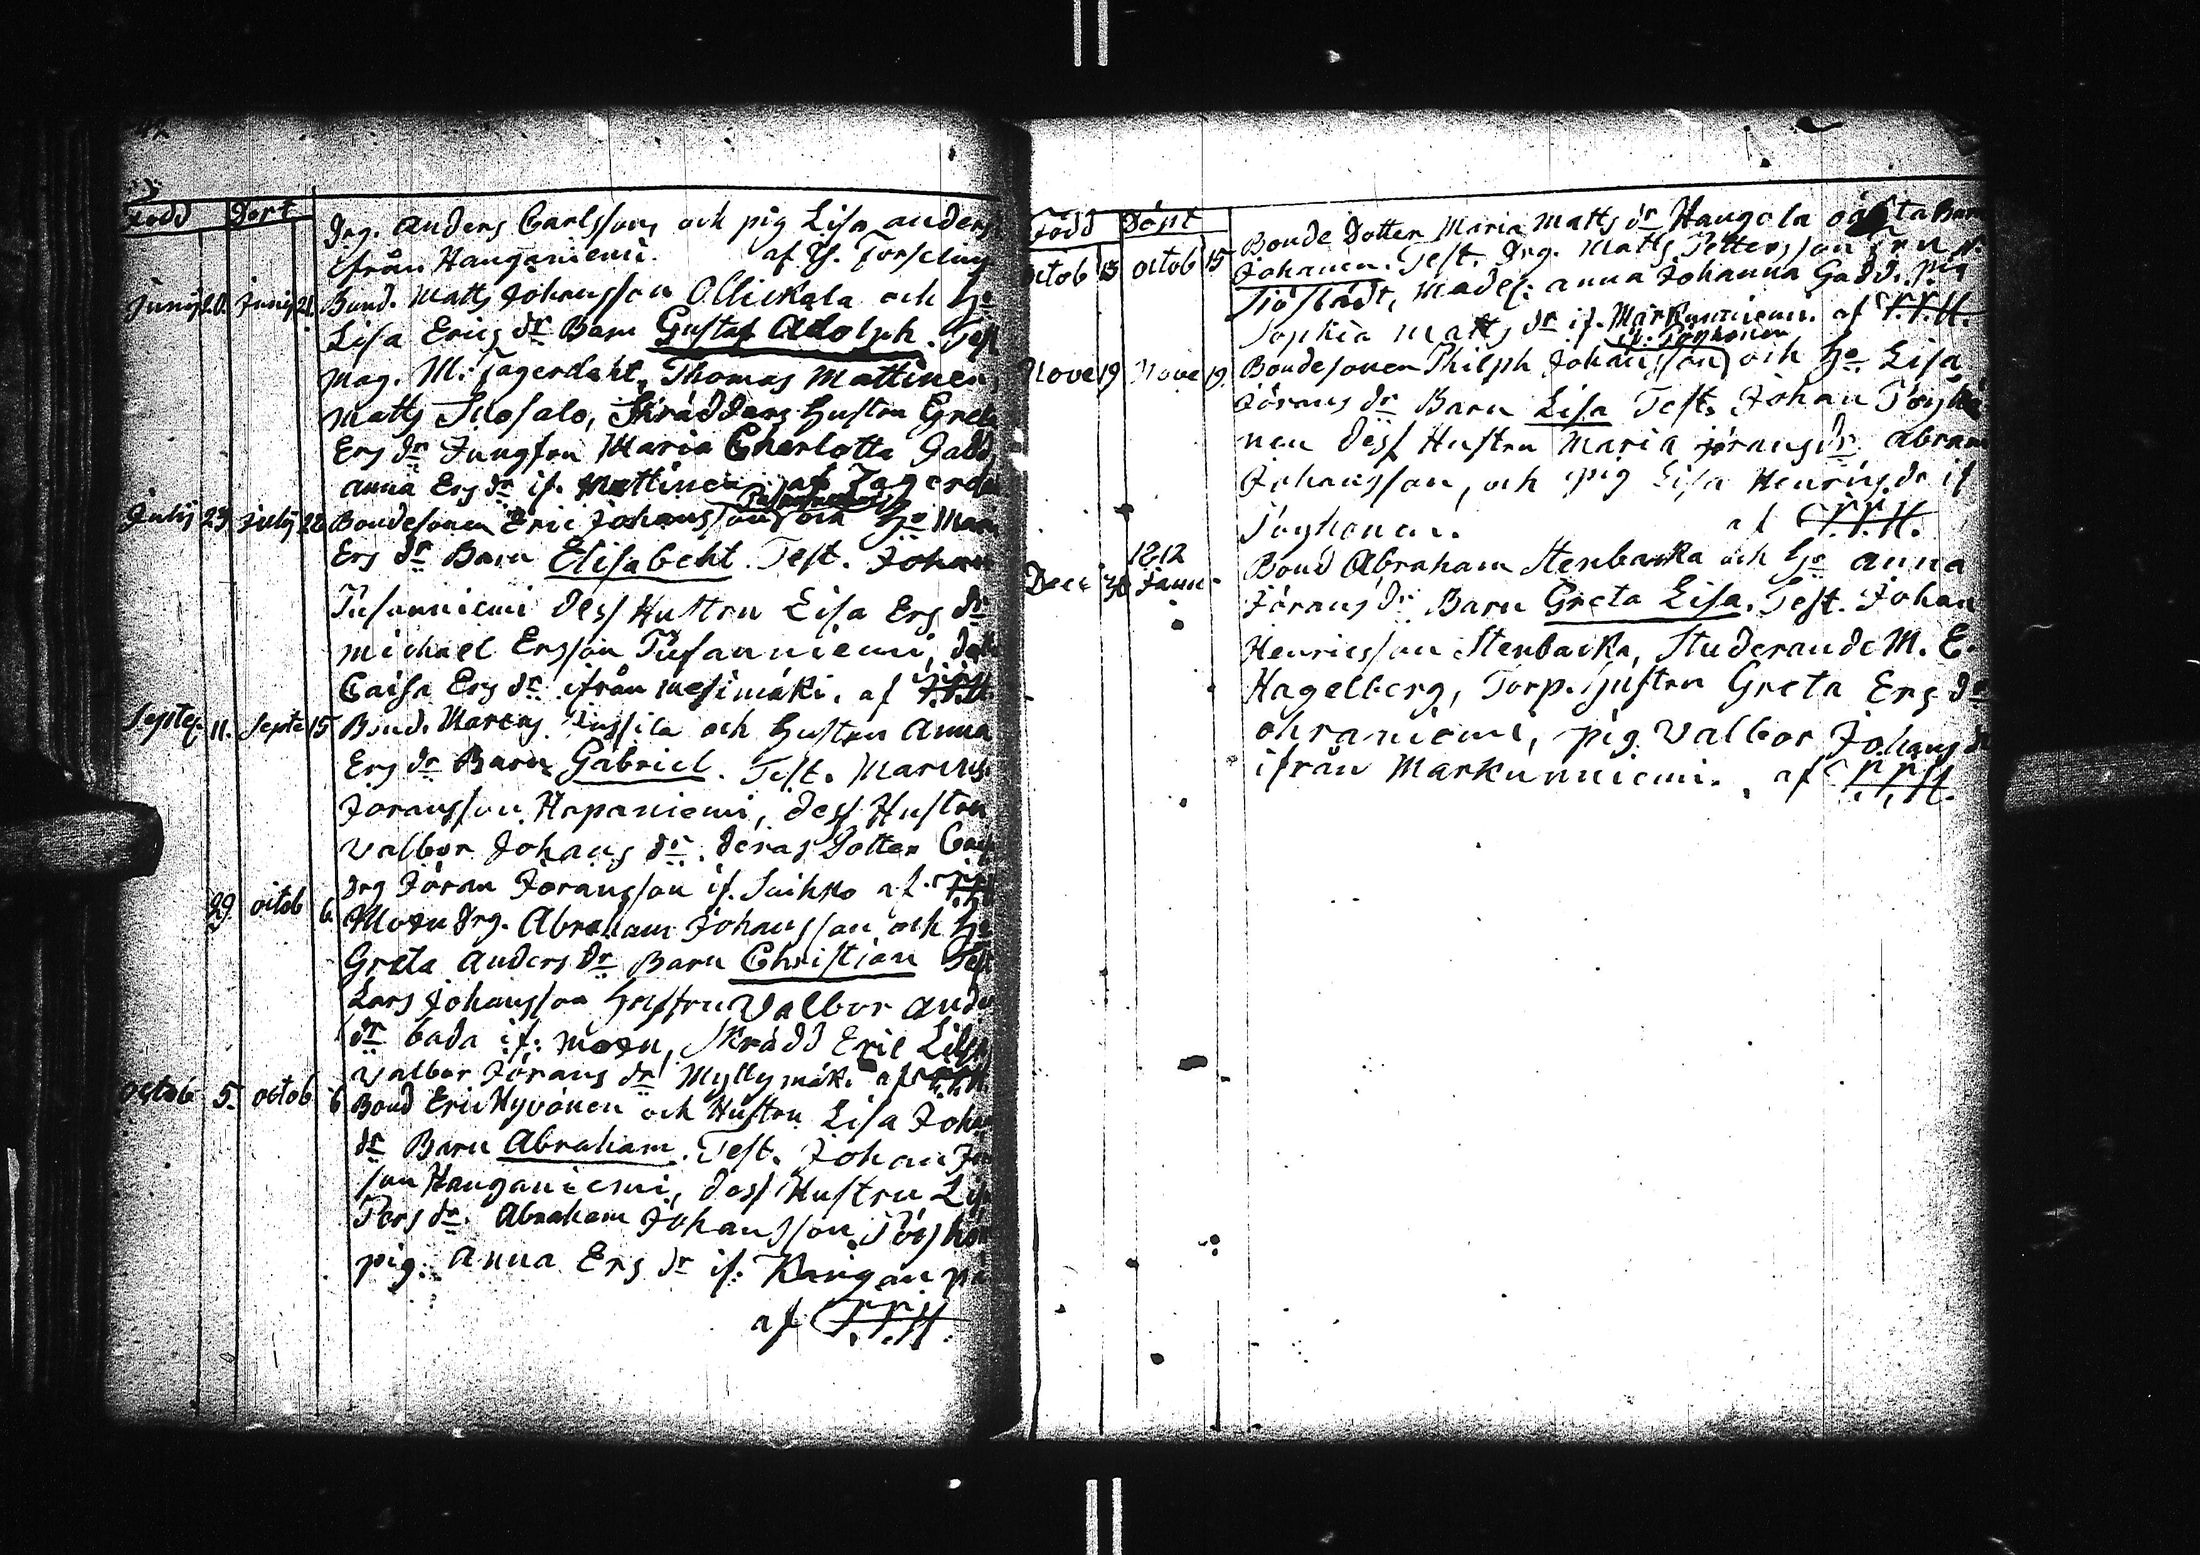 Född Döpt
Drg. Anders Carlsson, och pig Lisa anders
ifrån Hanganiemi. af Th. Forseling
Junij 20. Junij 21. Bond. Matts Johansson Ollickala och Ho
Lisa Erics dr Barn Gustaf Adolph. Test
Mag. M. Fagerdaht, Thomas Mattinen,
Matts Suosalo, Skrädders hustru Greta
Ers dr Jungfru Maria Charlotta Gadd,
Anna Ers dr if. Mattinen af Fagerda
July 23 July 28 Bondesonen Eric Johansson och Ho Mar
Ers dr Barn Elisabeht. Test. Johan
Tusanniemi Dess Hustru Lisa Ers dr
Michael Ersson Tusanniemi,
Caisa Ers dr ifrån Mesimäki. af
Septe 11. Septe 15 Bond. Marcus och Hustru Anna
Ers dr Barn Gabriel. Test. Marcus
Joransson Hapaniemi, Dess Hustru
Valbor Johans dr. deras Dotter
Drg Jöran Joransson if. Suihko af
29. octob 6. Moxn Drg. Abraham Johansson och Ho
Greta Anders dr Barn Christian Test
Lars Johansson hustru Valbor ande
dr bada if: moxn, Skrädd Eric
Valbor Jörans dr Myllymäki af
octob 5. octob 6 Bond Eric Hyvönen och Hustru Lisa Joha
dr Barn Abraham. Test. Johan
son Hanganiemi, dess Hustru
Pers dr. Abraham Johansson,
pig. Anna Ers dr if.
af F.F.H.
Född Döpt
Bonde Dotter Maria Matts dr Haugola Barn
octob 15 octob 15 Johannes. Test. Drg. Matts Pettersson
Sjöstädt, Madel: anna Johanna Gadd. pig
Sophia Matts dr if. Markunniemi. af F.F.H.
if. Pöyhönen
Nove 19 Nove 19. Bondesonen Philph Johansson och Ho Lisa
Jörans dr Barn Lisa Test. Johan Pöyhö
nen dess Hustru Maria Jörans dr Abram
Johansson, och pig Lisa Henrics dr if
Pöyhonen. af F.F.H.
1812
Dece 30 Janu Bond Abraham Stenbacka och Ho Anna
Jörans dr Barn Greta Lisa. Test. Johan
Henricsson Stenbacka, Studerande M. E.
Hagelberg, Torp. hustru Greta Ers dr
ohraniemi, pig Valbor Johans d
ifrån Markunniemi. af F.F.H.